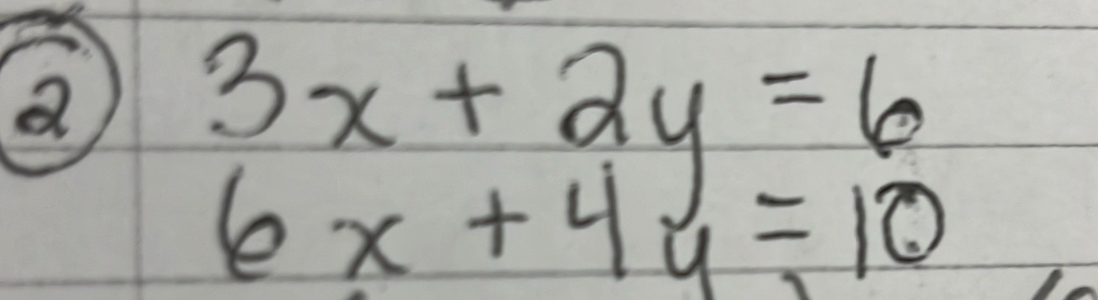 ② 3x + 2y = 6
6x + 4y = 10